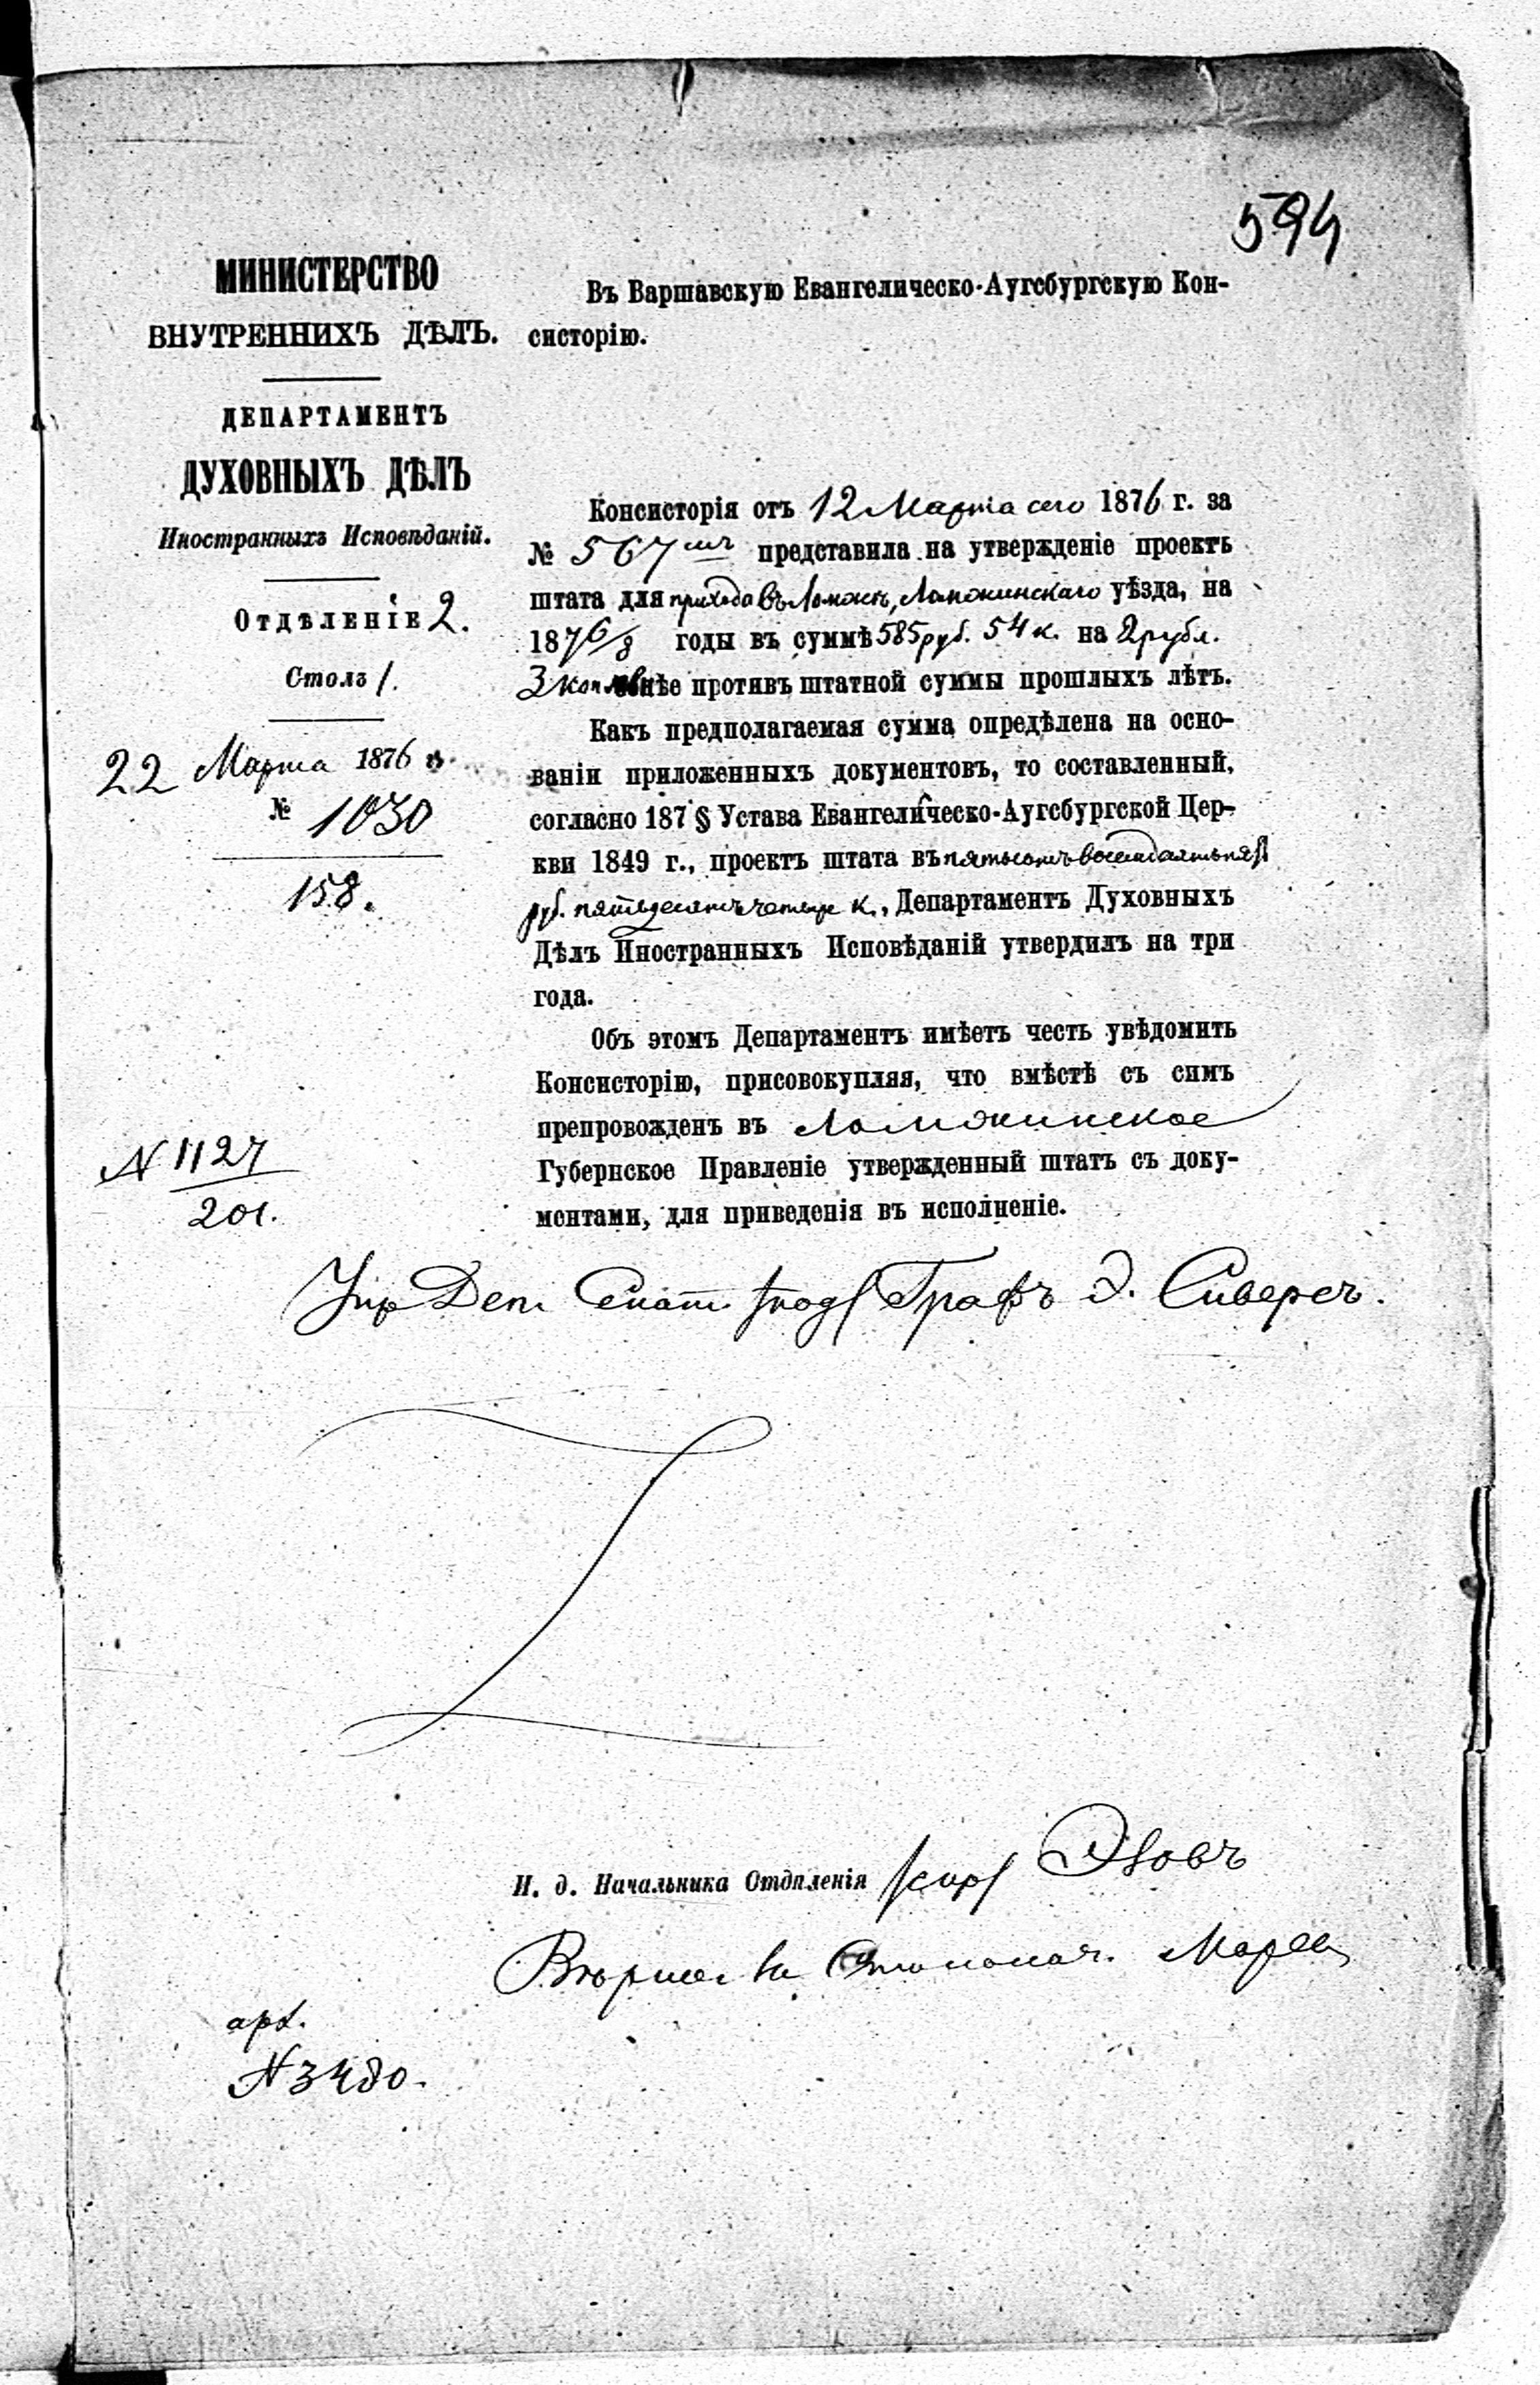 594
МИНИСТЕРСТВО
ВНУТРЕННИХЪ ДѢЛЪ.
ДЕПАРТАМЕНТЪ
ДУХОВНЫХЪ ДѢЛЪ
Иностранныхъ Исповѣданій.
Отдѣленіе 2.
Столъ 1.
22 Марта 1876 г.
№ 1030
158.
N 1127
201.
Въ Варшавскую Евангелическо-Аугсбургскую Кон-
систорію.
Консисторія отъ 12 Марта сего 1876 г. за
№ 567 представила на утвержденіе проектъ
штата для прихода въ Ломжѣ, Ломжинскаго уѣзда, на
1876/8 годы въ суммѣ 585 руб. 54 к. на 2 рубл.
3 коп. противъ штатной суммы прошлыхъ лѣтъ.
Какъ предполагаемая сумма опредѣлена на осно-
ваніи приложенныхъ документовъ, то составленный,
согласно 187 § Устава Евангелическо-Аугсбургской Цер-
кви 1849 г., проектъ штата въ пятьсотъ восемдесятъ пять
руб. пятьдесятъ четыре к., Департаментъ Духовныхъ
Дѣлъ Иностранныхъ Исповѣданій утвердилъ на три
года.
Объ этомъ Департаментъ имѣетъ честь увѣдомить
Консисторію, присовокупляя, что вмѣстѣ съ симъ
препровожденъ въ Ломжинское
Губернское Правленіе утвержденный штатъ съ доку-
ментами, для приведенія въ исполненіе.
Упр Деп. Сенат. /подп/ Графъ Э. Сиверсъ.
И. д. Начальника Отдѣленія /скр/
Вѣрно: За Столонач.
арх.
N 3480.